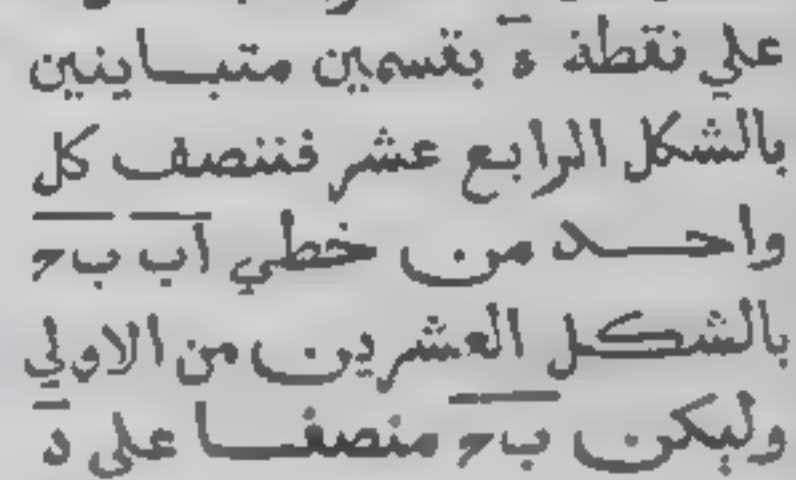 علي نقطة ه بقسمين متباينين
بالشكل الرابع عشر فننصف كل
واحد من خطي اب ب‍ح
بالشكل العشرين من الاولي
وليكن ب‍ح منصفا علي د